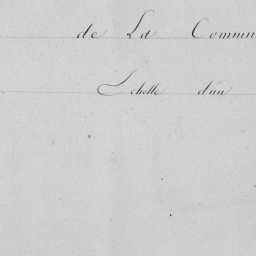 de La Commu
Echelle d'un